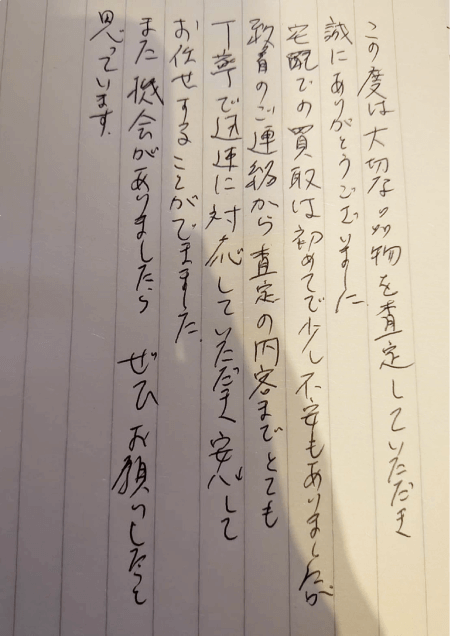 この度は大切な品物を査定していただき
誠にありがとうございました
宅配での買取は初めてで少し不安もありましたが
到着のご連絡から査定の内容までとても
丁寧で迅速に対応していただき安心して
お任せすることができました
また機会がありましたら ぜひお願いしたいと
思っています。